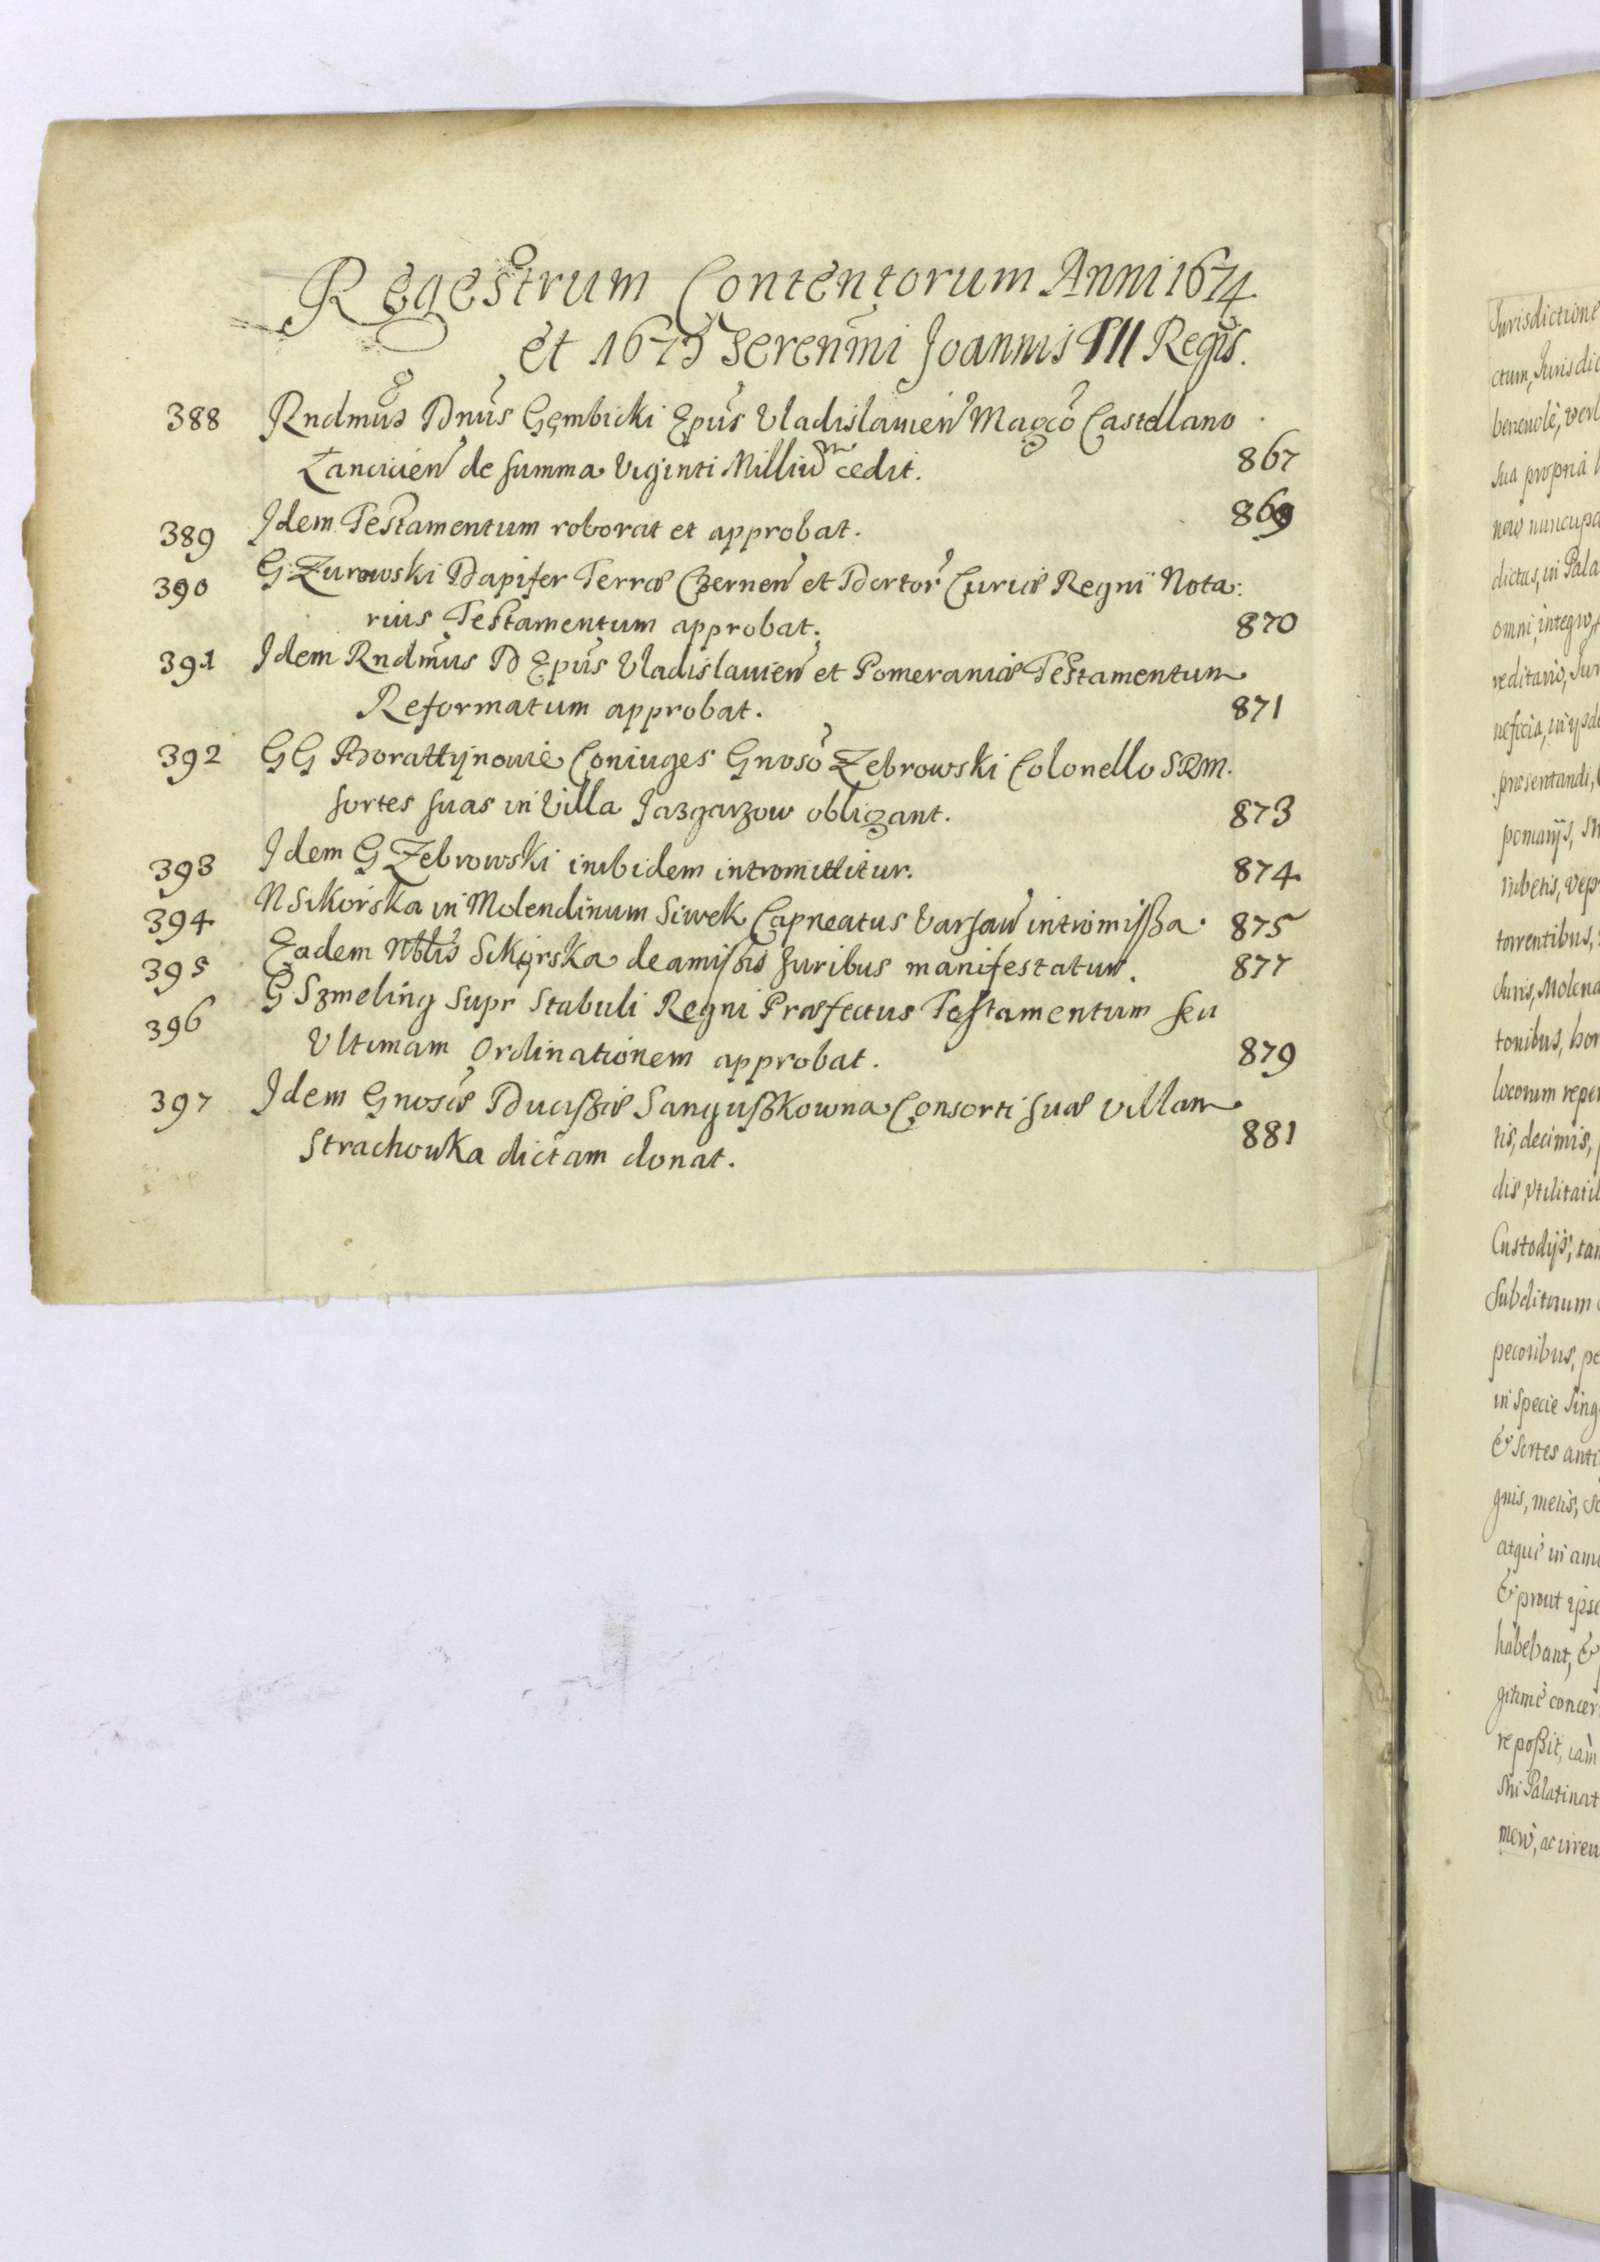 Regestrum Contentorum Anni 1674
et 1675 Serenmi Joannis III Regis.
388 Rndmus Dnus Gembicki Epus Vladislauien Magco Castellano
Lanciuien de summa Viginti Milliu cedit. 867
389 Idem Testamentum roborat et approbat. 869
390 G Zurowski Dapifer Terræ Czernen et Curiæ Regni Nota:
rius Testamentum approbat. 870
391 Idem Rndmus D Epus Vladislauien et Pomeraniæ Testamentum
Reformatum approbat. 871
392 GG Borattynowie Coniuges Gnoso Zebrowski Colonello SRM.
sortes suas in Villa Jazgarzow obligant. 873
393 Idem G Zebrowski inibidem intromittitur. 874
394 N Sikorska in Molendinum Siwek Capneatus Varsaw intromissa. 875
395 Eadem Nblis Sikorska de amissis Juribus manifestatur. 877
396 G Szmeling Supr Stabuli Regni Præfectus Testamentum seu
Ultimam Ordinationem approbat. 879
397 Idem Gnosæ Ducissæ Sanguszkowna Consorti suæ villam
Strachowka dictam donat. 881
Jurisdictione
ctum, Jurisdic
beneuolè, verb
sua propria
nuncupa
dictus, in Pala
omni, integro,
reditario, Jur
neficia, in ijsde
præsentandi,
pomarijs,
rubetis, vep
torrentibus,
duris, Molend
tonibus, hor
locorum reper
tis, decimis,
dis, Vtilitatib
Custodijs, tam
Subditorum
pecoribus, pe
in specie sing
& sortes anti
gnis, metis,
atque in
& prout ipse
habebant, &
gitimè concer
re possit, iam
Palatinat